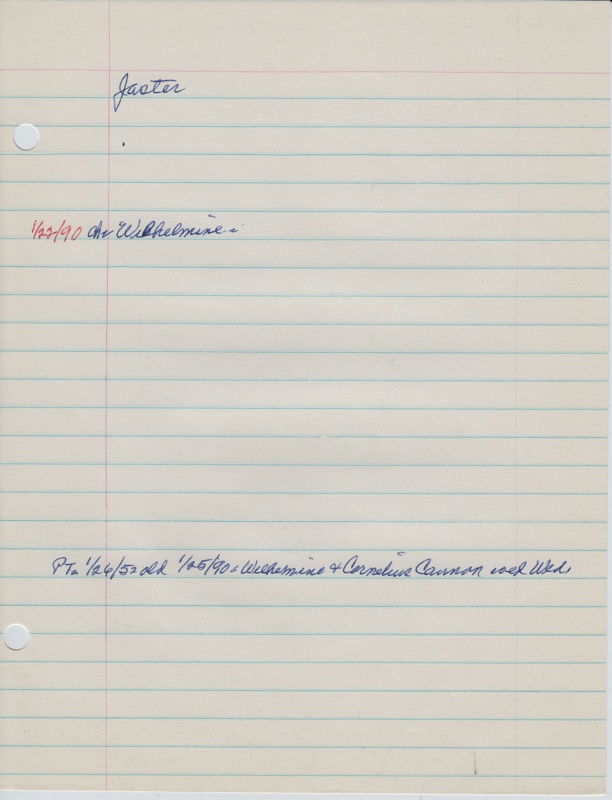 Jaster
1/22/90 Wilhelmine
PT- 1/26/5 1/25/90 - Wilhelmine & Cornelius Cannon Wed.